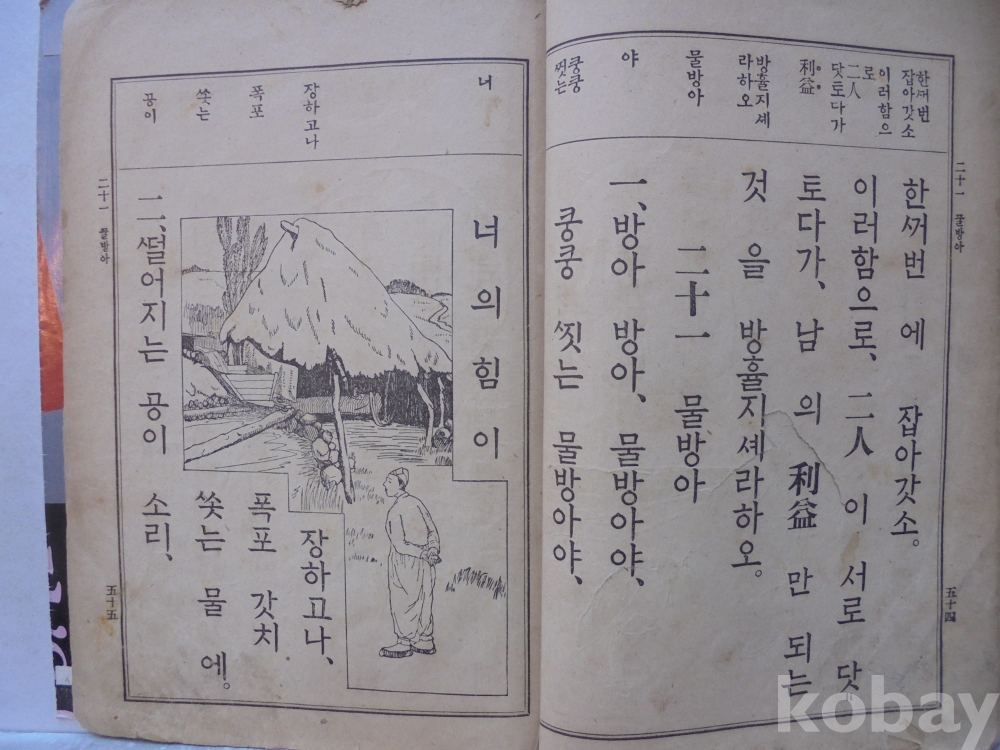 한ᄭᅥ번
잡아갓소
이러함으
로
二人
닷토다가
利益
방휼지셰
라하오
물방아
야
쿵쿵
찟는
한ᄭᅥ번 에 잡아갓소。
이러함으로、二人 이 서로 닷
토다가、남 의 利益 만 되는
것 을 방휼지셰라하오。
二十一 물방아
一、방아 방아、물방아야、
쿵쿵 찟는 물방아야、
二十一 물방아
五十四
너
장하고나
폭포
쏫는
공이
너의힘이
장하고나、
폭포 갓치
쏫는 물 에。
二、ᄯᅥᆯ어지는 공이 소리、
二十一 물방아
五十五
kobay